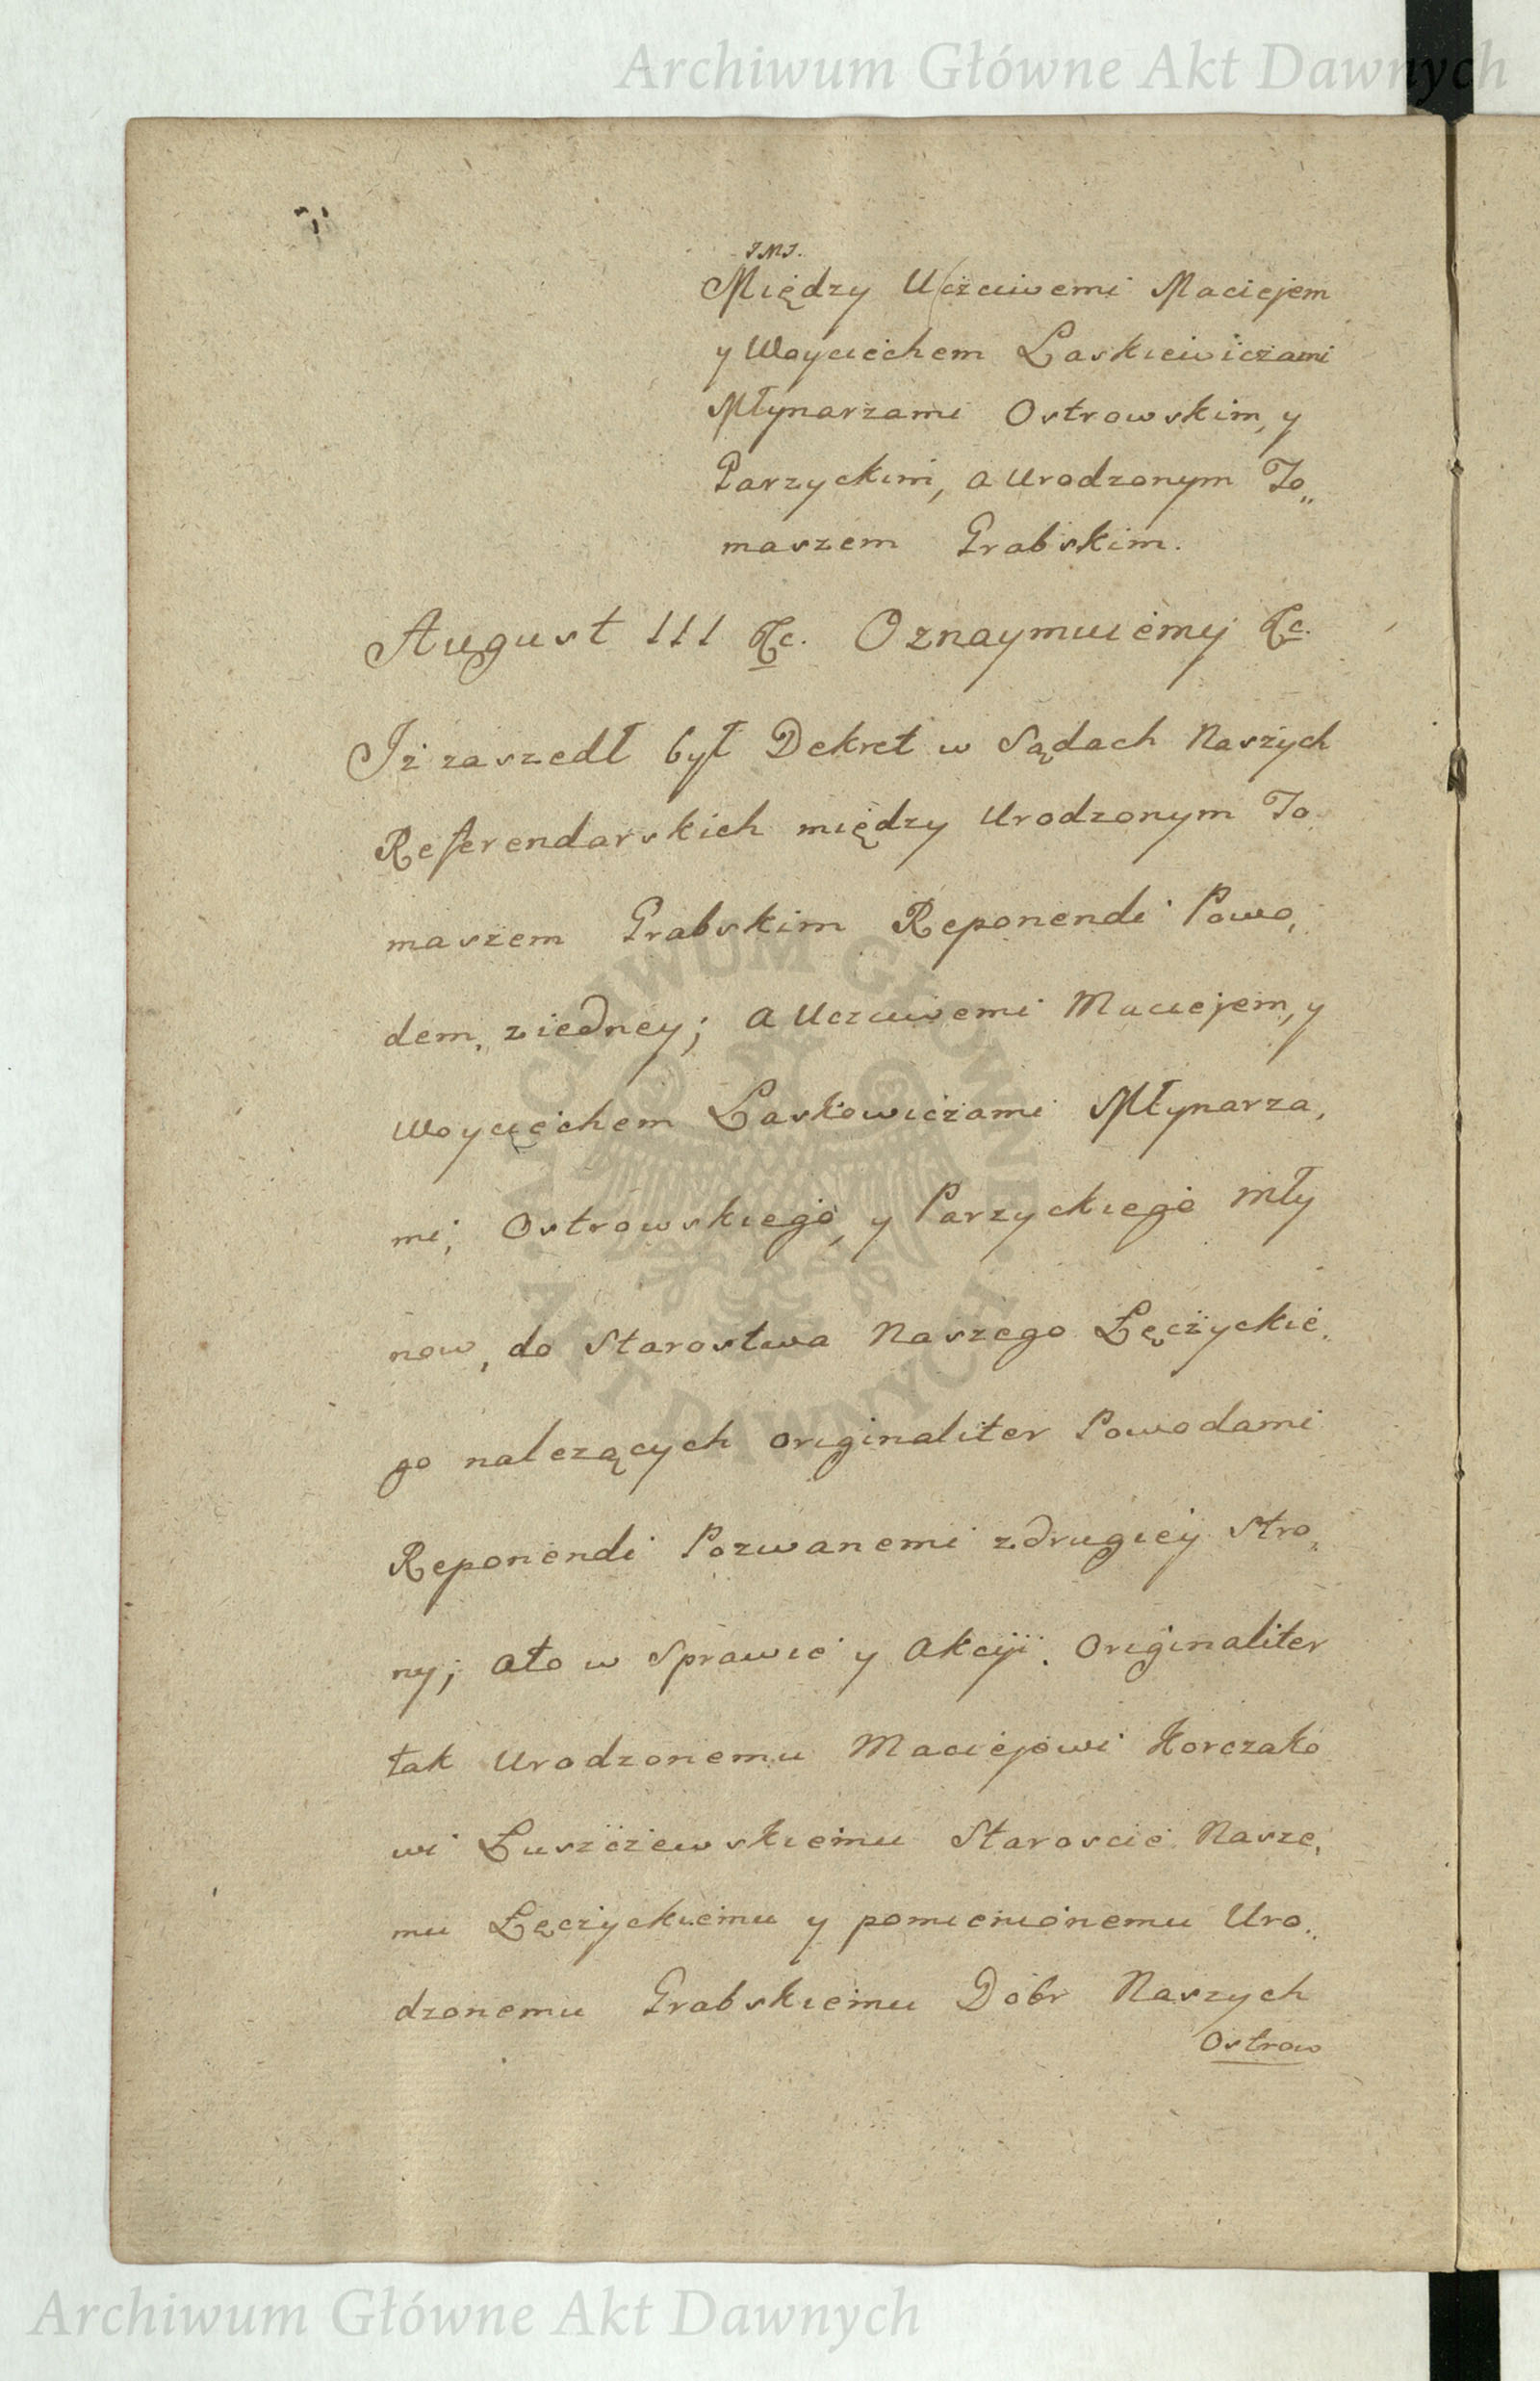 Archiwum Główne Akt Dawnych
JMJ.
Między Uczciwemi Maciejem
y Woyciechem Laskiewiczami
Młynarzami Ostrowskim, y
Parzyckim, a Urodzonym To„
maszem Grabskim.
August III &c. Oznaymuiemy &c.
Iż zaszedł był Dekret w Sądach Naszych
Referendarskich między Urodzonym To
maszem Grabskim Reponendi Powo,
dem, z iedney; a Uczciwemi Maciejem, y
Woyciechem Laskowiczami Młynarza,
mi, Ostrowskiego, y Parzyckiego Mły
now, do Starostwa Naszego Łęczyckie„
go nalezących originaliter Powodami
Reponendi Pozwanemi z drugiey Stro„
ny; ato w Sprawie y Akcyi. Originaliter
tak Urodzonemu Maciejowi Korczako
wi Łuszczewskiemu Staroscie Nasze,
mu Łęczyckiemu y pomienionemu Uro„
dzonemu Grabskiemu Dobr Naszych
Ostrow
ARCHIWUM GŁÓWNE AKT DAWNYCH
Archiwum Główne Akt Dawnych